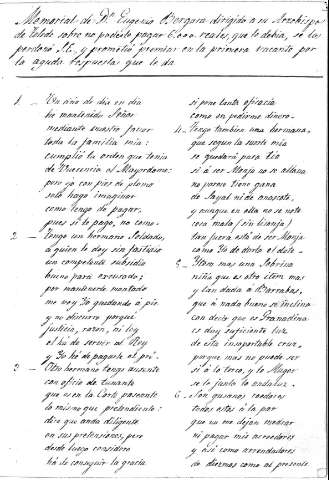 Memorial de Dn Eugenio Bergara dirigido a su Arzobispo
de Toledo sobre no poderle pagar 6,000 reales, que le debia, se los
perdonó S.E. y prometió premiar en la primera vacante por
la aguda respuesta que le da
1. Un año de dia en dia
he mantenido Señor
mediante vuestro favor
toda la familia mia:
cumplió la orden que tenia
de Vuecencia el Mayordomo:
pues yo con pies de plomo
solo hago imaginar
como tengo de pagar,
pues si le pago, no como.
2. Tengo un hermano Soldado,
á quien le doy sin fastidio
un competente subsidio
bueno para escusado:
por mantenerle montado
me voy Yo quedando á pie
y no discurro porqué
justicia, razon, ni ley
el há de servir al Rey
y Yo hé de pagarle el pré.
3. Otro hermano tengo ausente
con oficio de tunante
que es en la Corte paseante
lo mismo que pretendiente:
dice que anda diligente
en sus pretensiones, pero
desde luego considero
há de conseguir la gracia
si pone tanta eficacia
como en pedirme dinero.
4. Tengo tambien una hermana,
que segun la suerte mia
se quedará para tia
si á ser Monja no se allana
no parece tiene gana
de Sayal ni de anascote,
y aunque en ella no se note
cosa mala (sin lisonja)
tan fuera está de ser Monja
como Yo de darla el dote
5. Item mas una Sobrina
niña que es otro item mas
y tan dada á Barrabas,
que á nada bueno se inclina
con decir que es Granadina
es dar suficiente luz
de esta insoportable cruz,
porque mas no puede ser
si á lo terco, y lo Muger
se le junta lo andaluz.
6. Son quienes roedores
todos estos á la par
que no me dejan medrar
ni pagar mis acreedores
y así como arrendadores
de diezmos como al presente